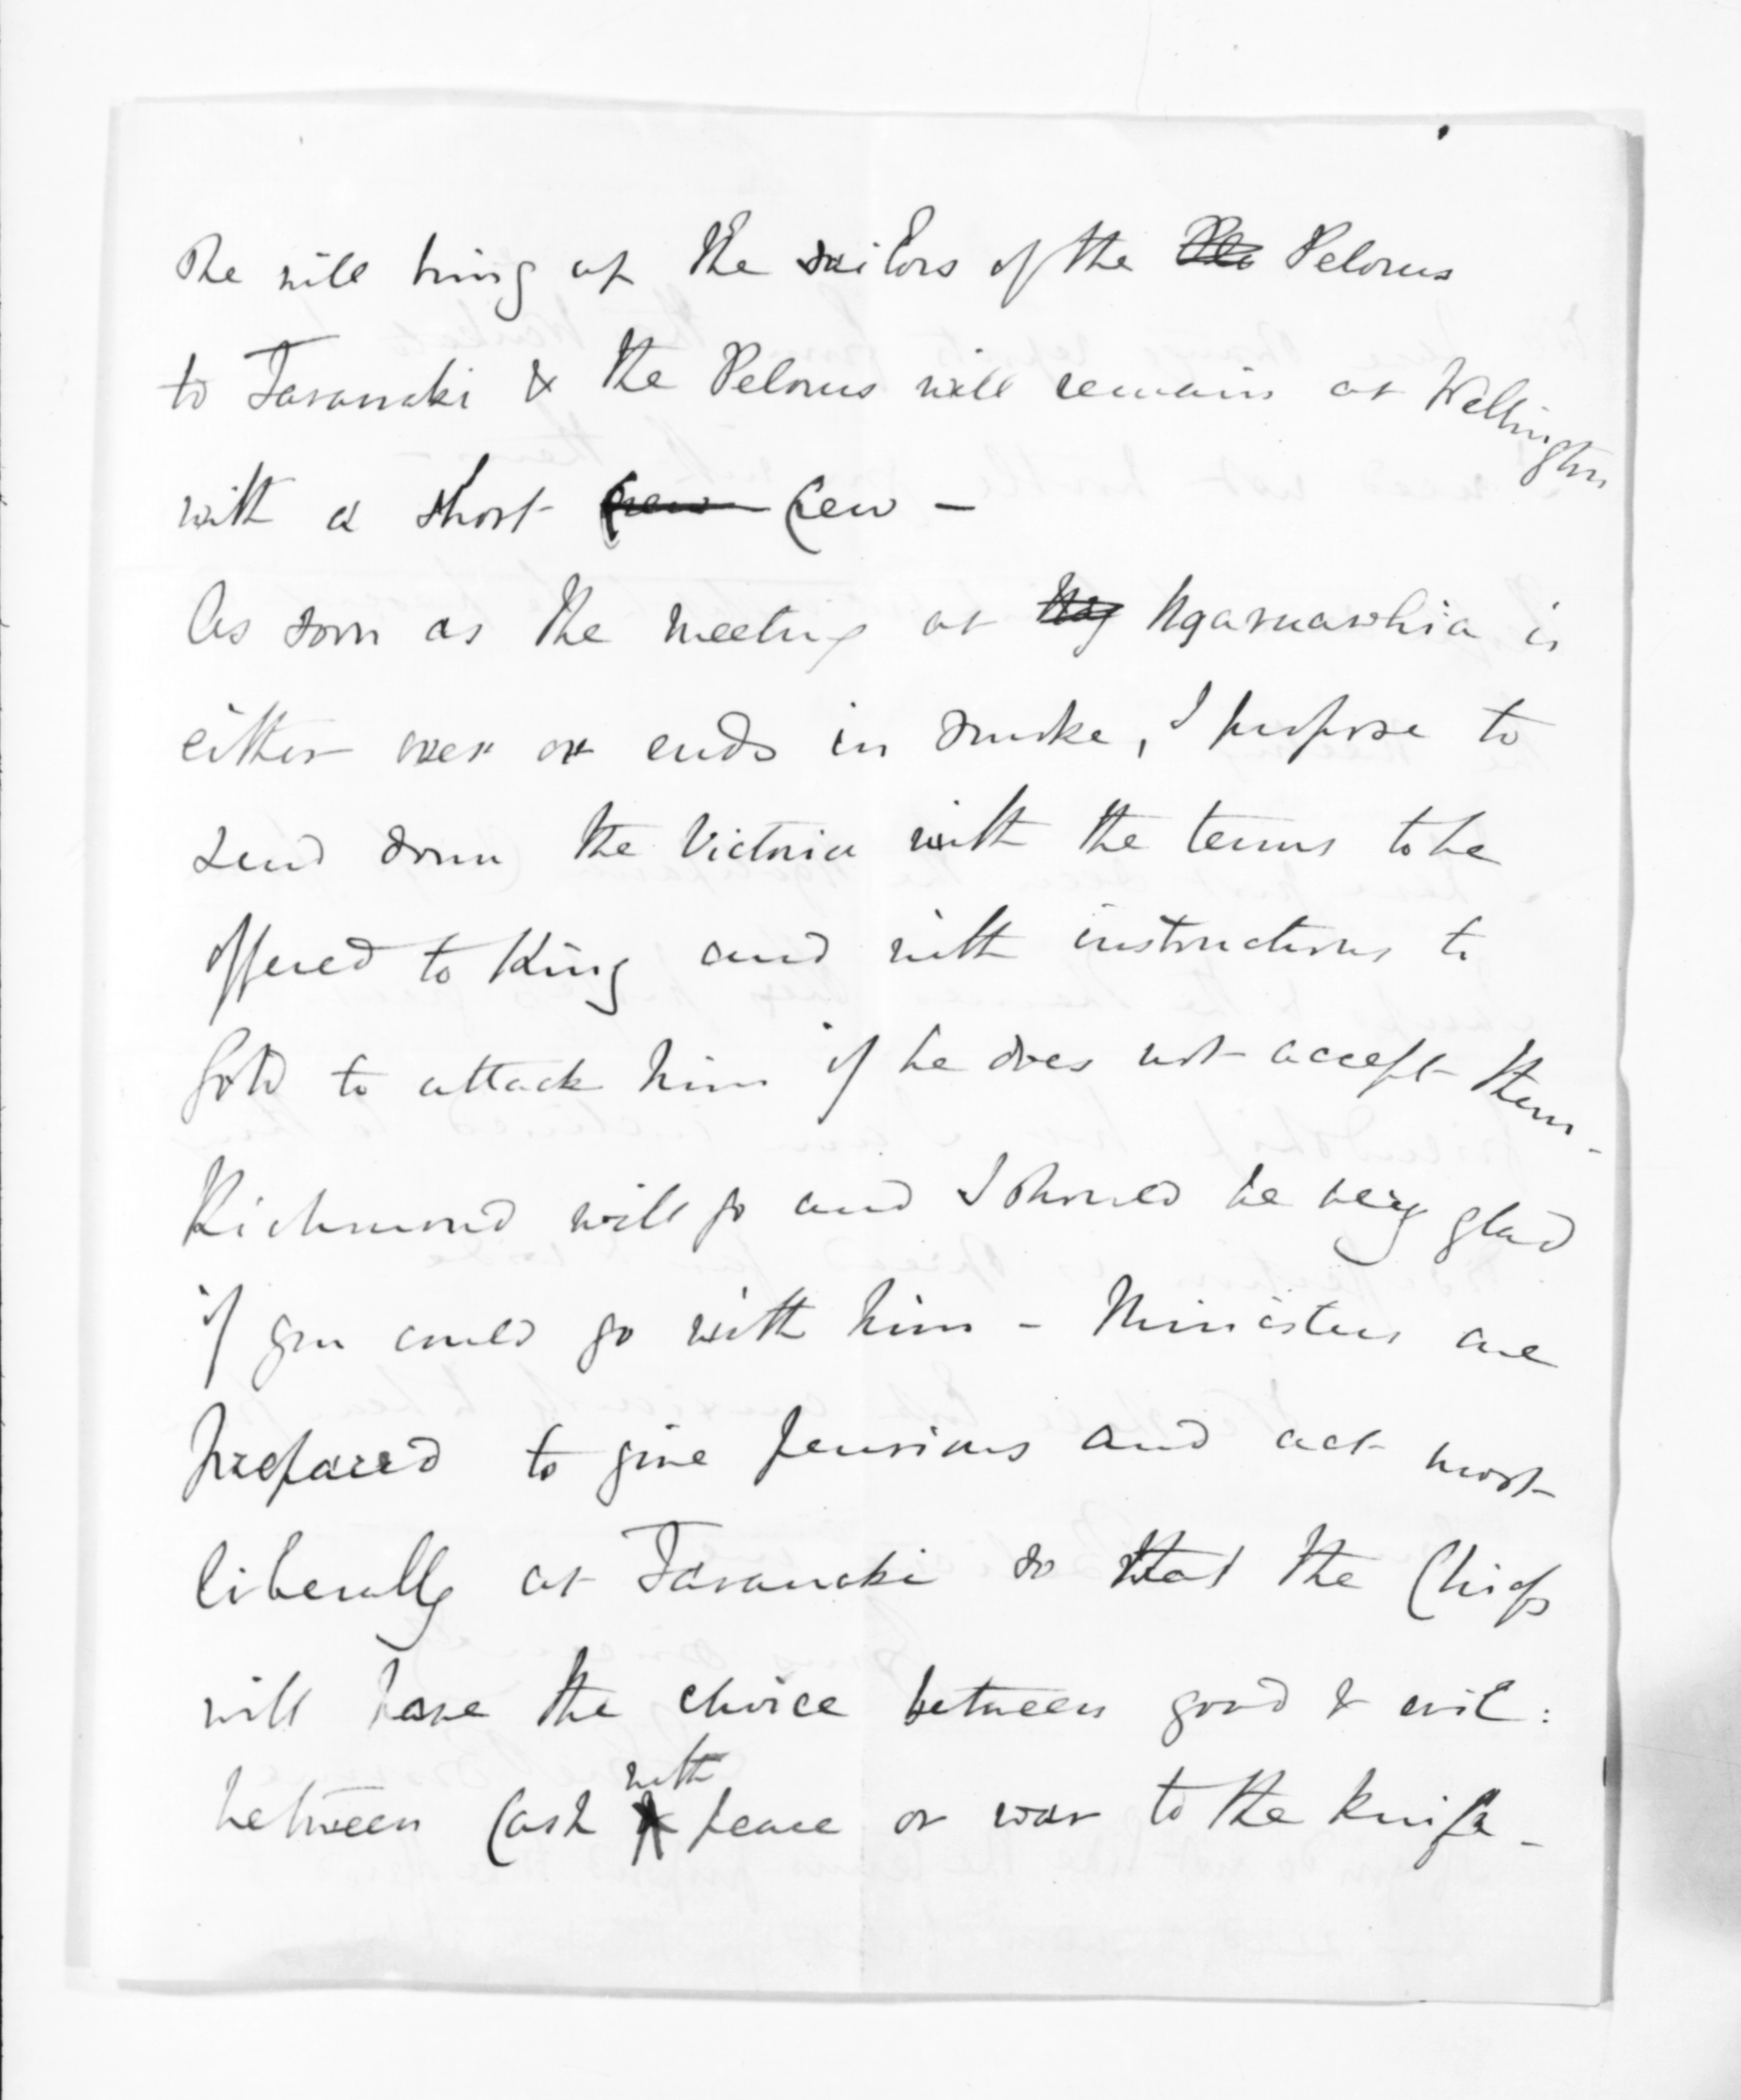 She will bring up the sailors of the Pelorus
to Taranaki & the Pelorus will remain at Wellington
with a short Crew Crew –
As soon as the meeting at Ngaruawhia is
either over or ends in smoke, I propose to
send down the Victoria with the terms to be
offered to King and with instructions to
Gold to attack him if he does not accept them –
Richmond will go and I should be very glad
if you could go with him – Ministers are
prepared to give pensions and act most
liberally at Taranaki so that the Chiefs
will have the choice between good & evil:
between Cash with peace or war to the knife –